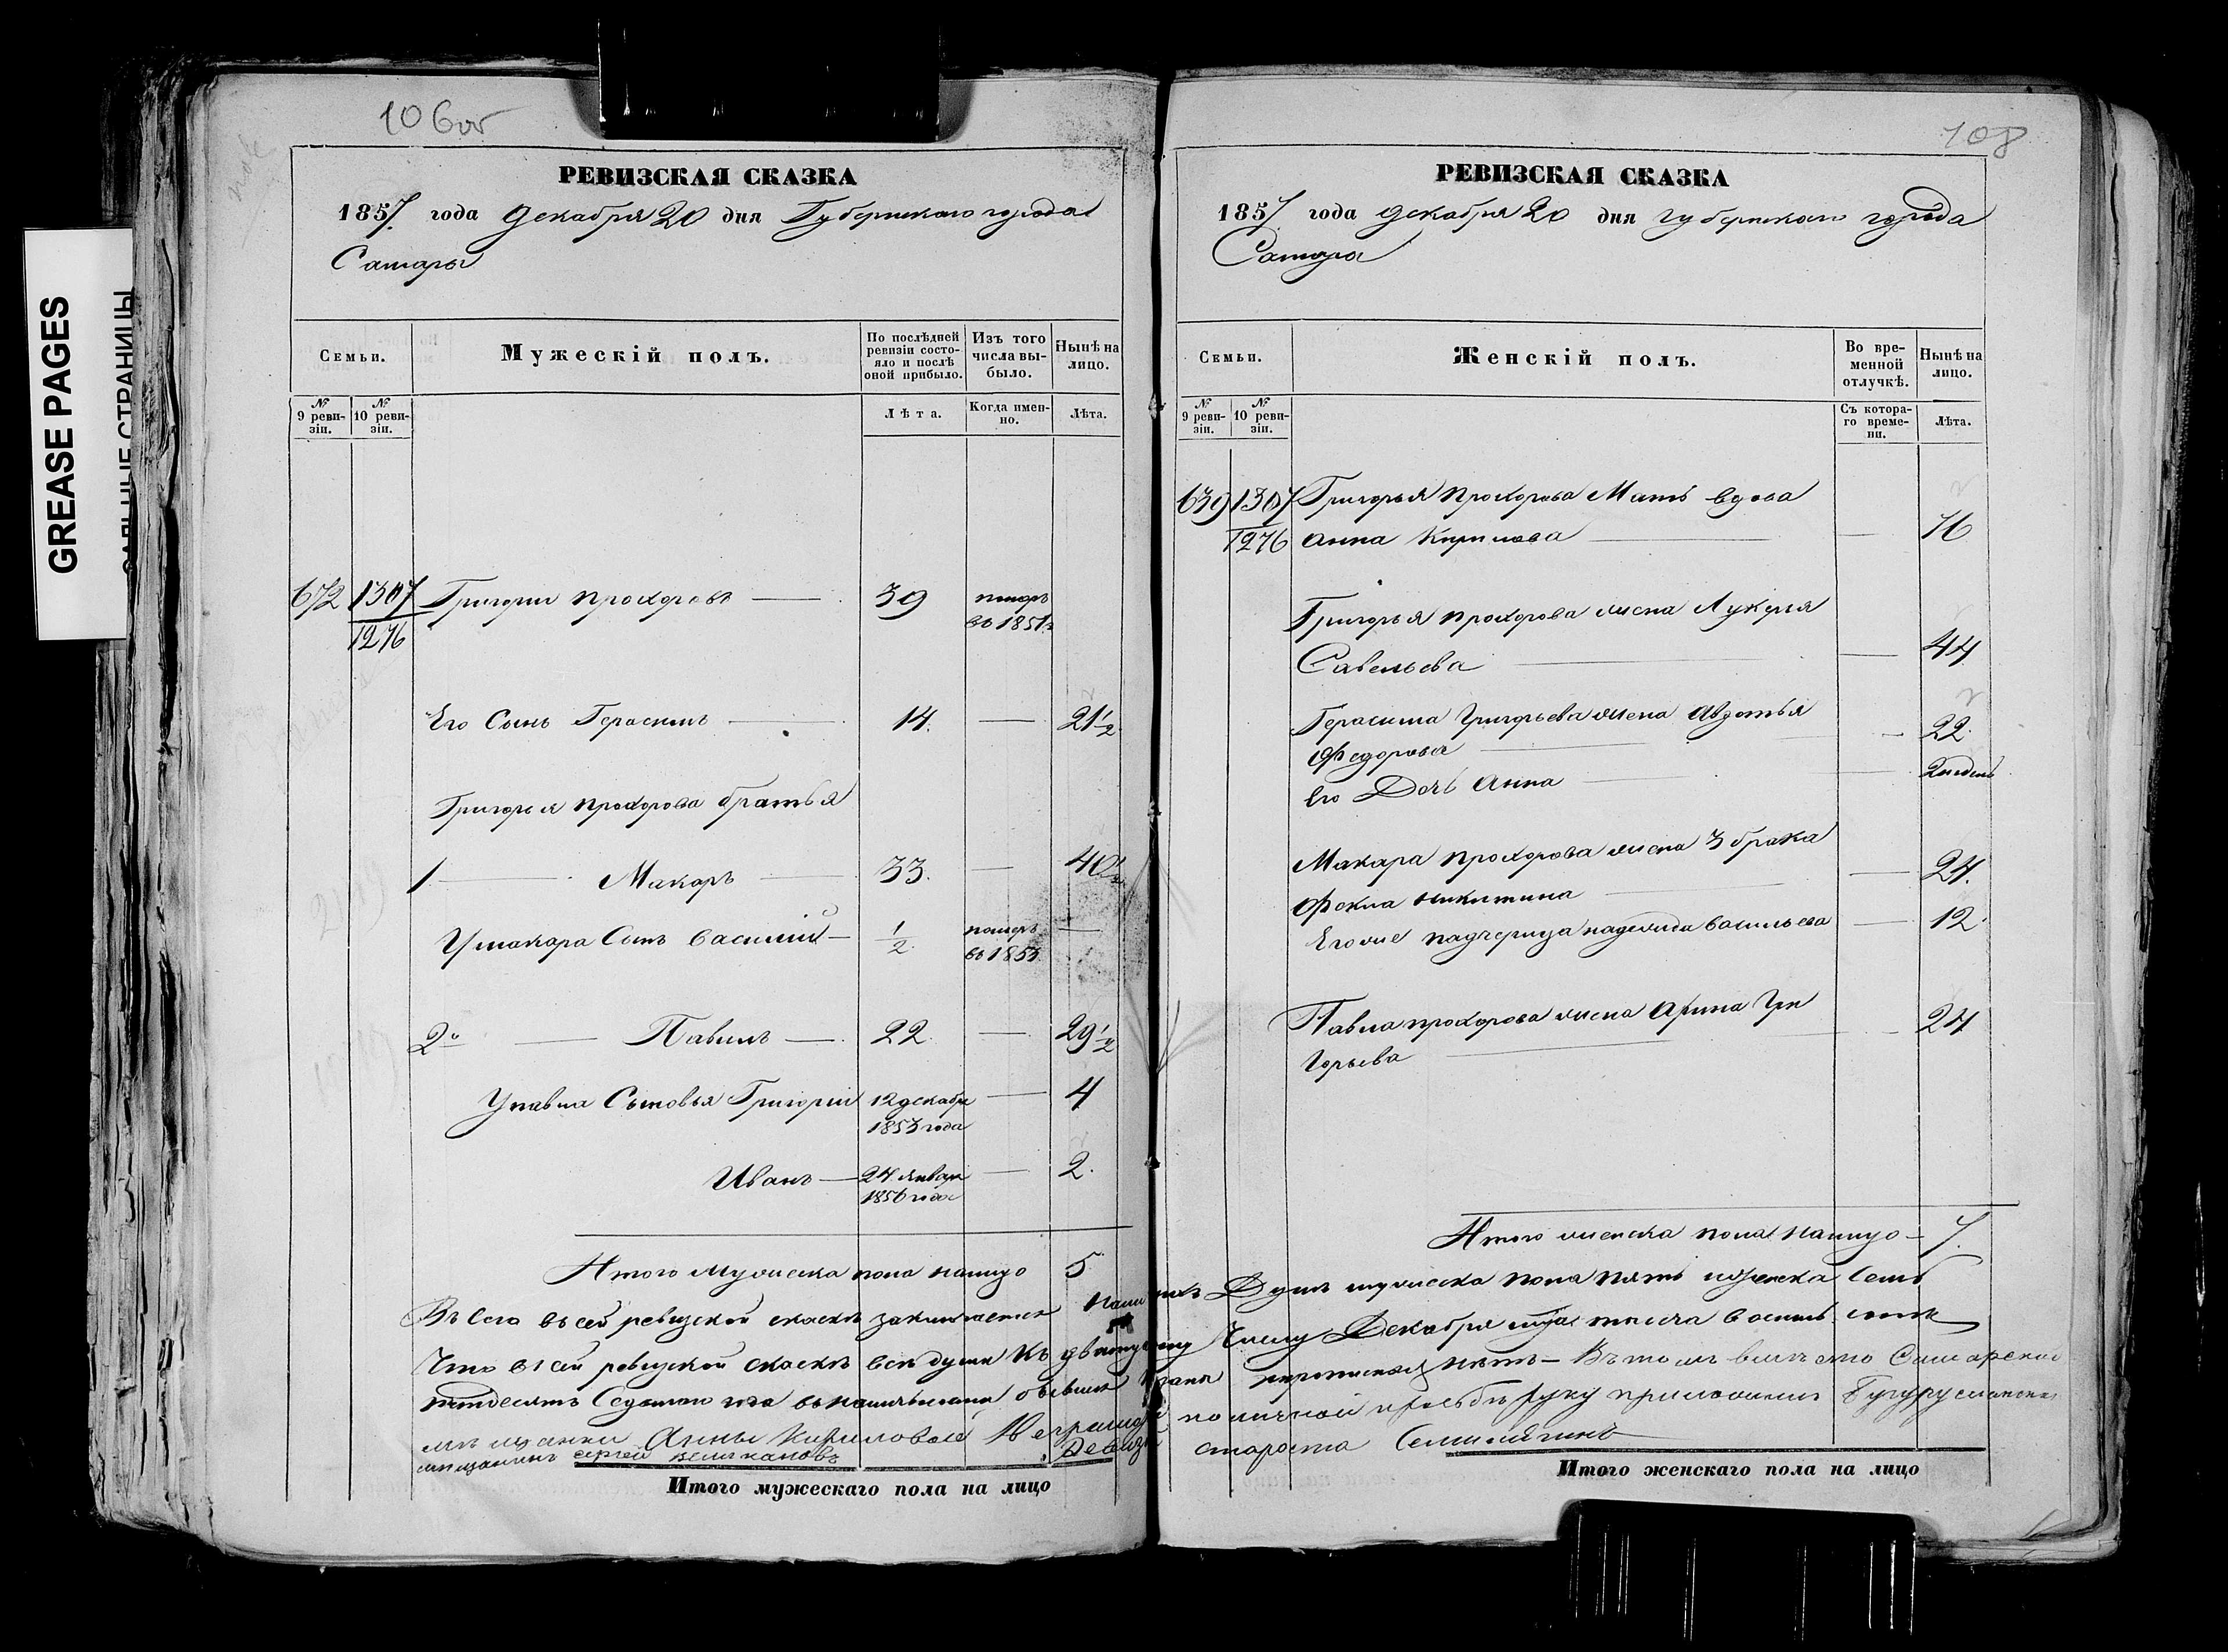 GREASE PAGES
САЛЬНЫЕ СТРАНИЦЫ
106об
РЕВИЗСКАЯ СКАЗКА
1857 года Декабря 20 дня Губернскаго города
Самары
Семьи.
Мужескій полъ.
По послѣдней ревизіи состояло и послѣ оной прибыло.
Изъ того числа выбыло.
Нынѣ на лицо.
№ 9 ревизіи.
№ 10 ревизіи.
Лѣта.
Когда именно.
Лѣта.
672 1307 Григорій Прохоровъ 39 померъ
1276 въ 1851
Его Сынъ Герасимъ 14. 21 1/2
Григорья Прохорова братья
1 Макаръ 33. 40 1/2
У Макара Сынъ Василий 1/2 померъ
въ 1853
2й Павилъ 22 29 1/2
У Павла Сыновья Григорій 12 декабря 4
1853 года
Иванъ 24 января 2.
1856 года
Итого мужеска пола налицо 5
108
РЕВИЗСКАЯ СКАЗКА
1857 года декабря 20 дня губернскаго города
Самара
Семьи.
Женскій полъ.
Во временной отлучкѣ.
Нынѣ на лицо.
№ 9 ревизіи.
№ 10 ревизіи.
Съ котораго времени.
Лѣта.
639 1307 Григорья Прохорова Мать вдова
1276 Анна Кирилова 76
Григорья Прохорова жена Лукерья
Савельева 44
Герасима Григорьева жена Авдотья
Федорова 22
Его Дочь Анна
Макара Прохорова жена 3 брака
Фекла Никитина 24.
Его же падчерица надежда васильева 12
Павла прохорова жена Арина Гри
горьева 24
Итого женска пола налицо 7.
Всего в сей ревизской скаскѣ заключается Душъ мужеска пола пять и женска семь
Что в сей ревизской скаскѣ всѣ души къ числу Декабря тысяча восемь сотъ
пятдесятъ Седьмаго года нѣтъ — Въ томъ вмѣсто Самарской
мѣщанки Анны Кириловой по личной прозьбѣ руку приложилъ Бугурусланской
мѣщанинъ Сергей Великановъ
староста
Итого мужескаго пола на лицо
Итого женскаго пола на лицо